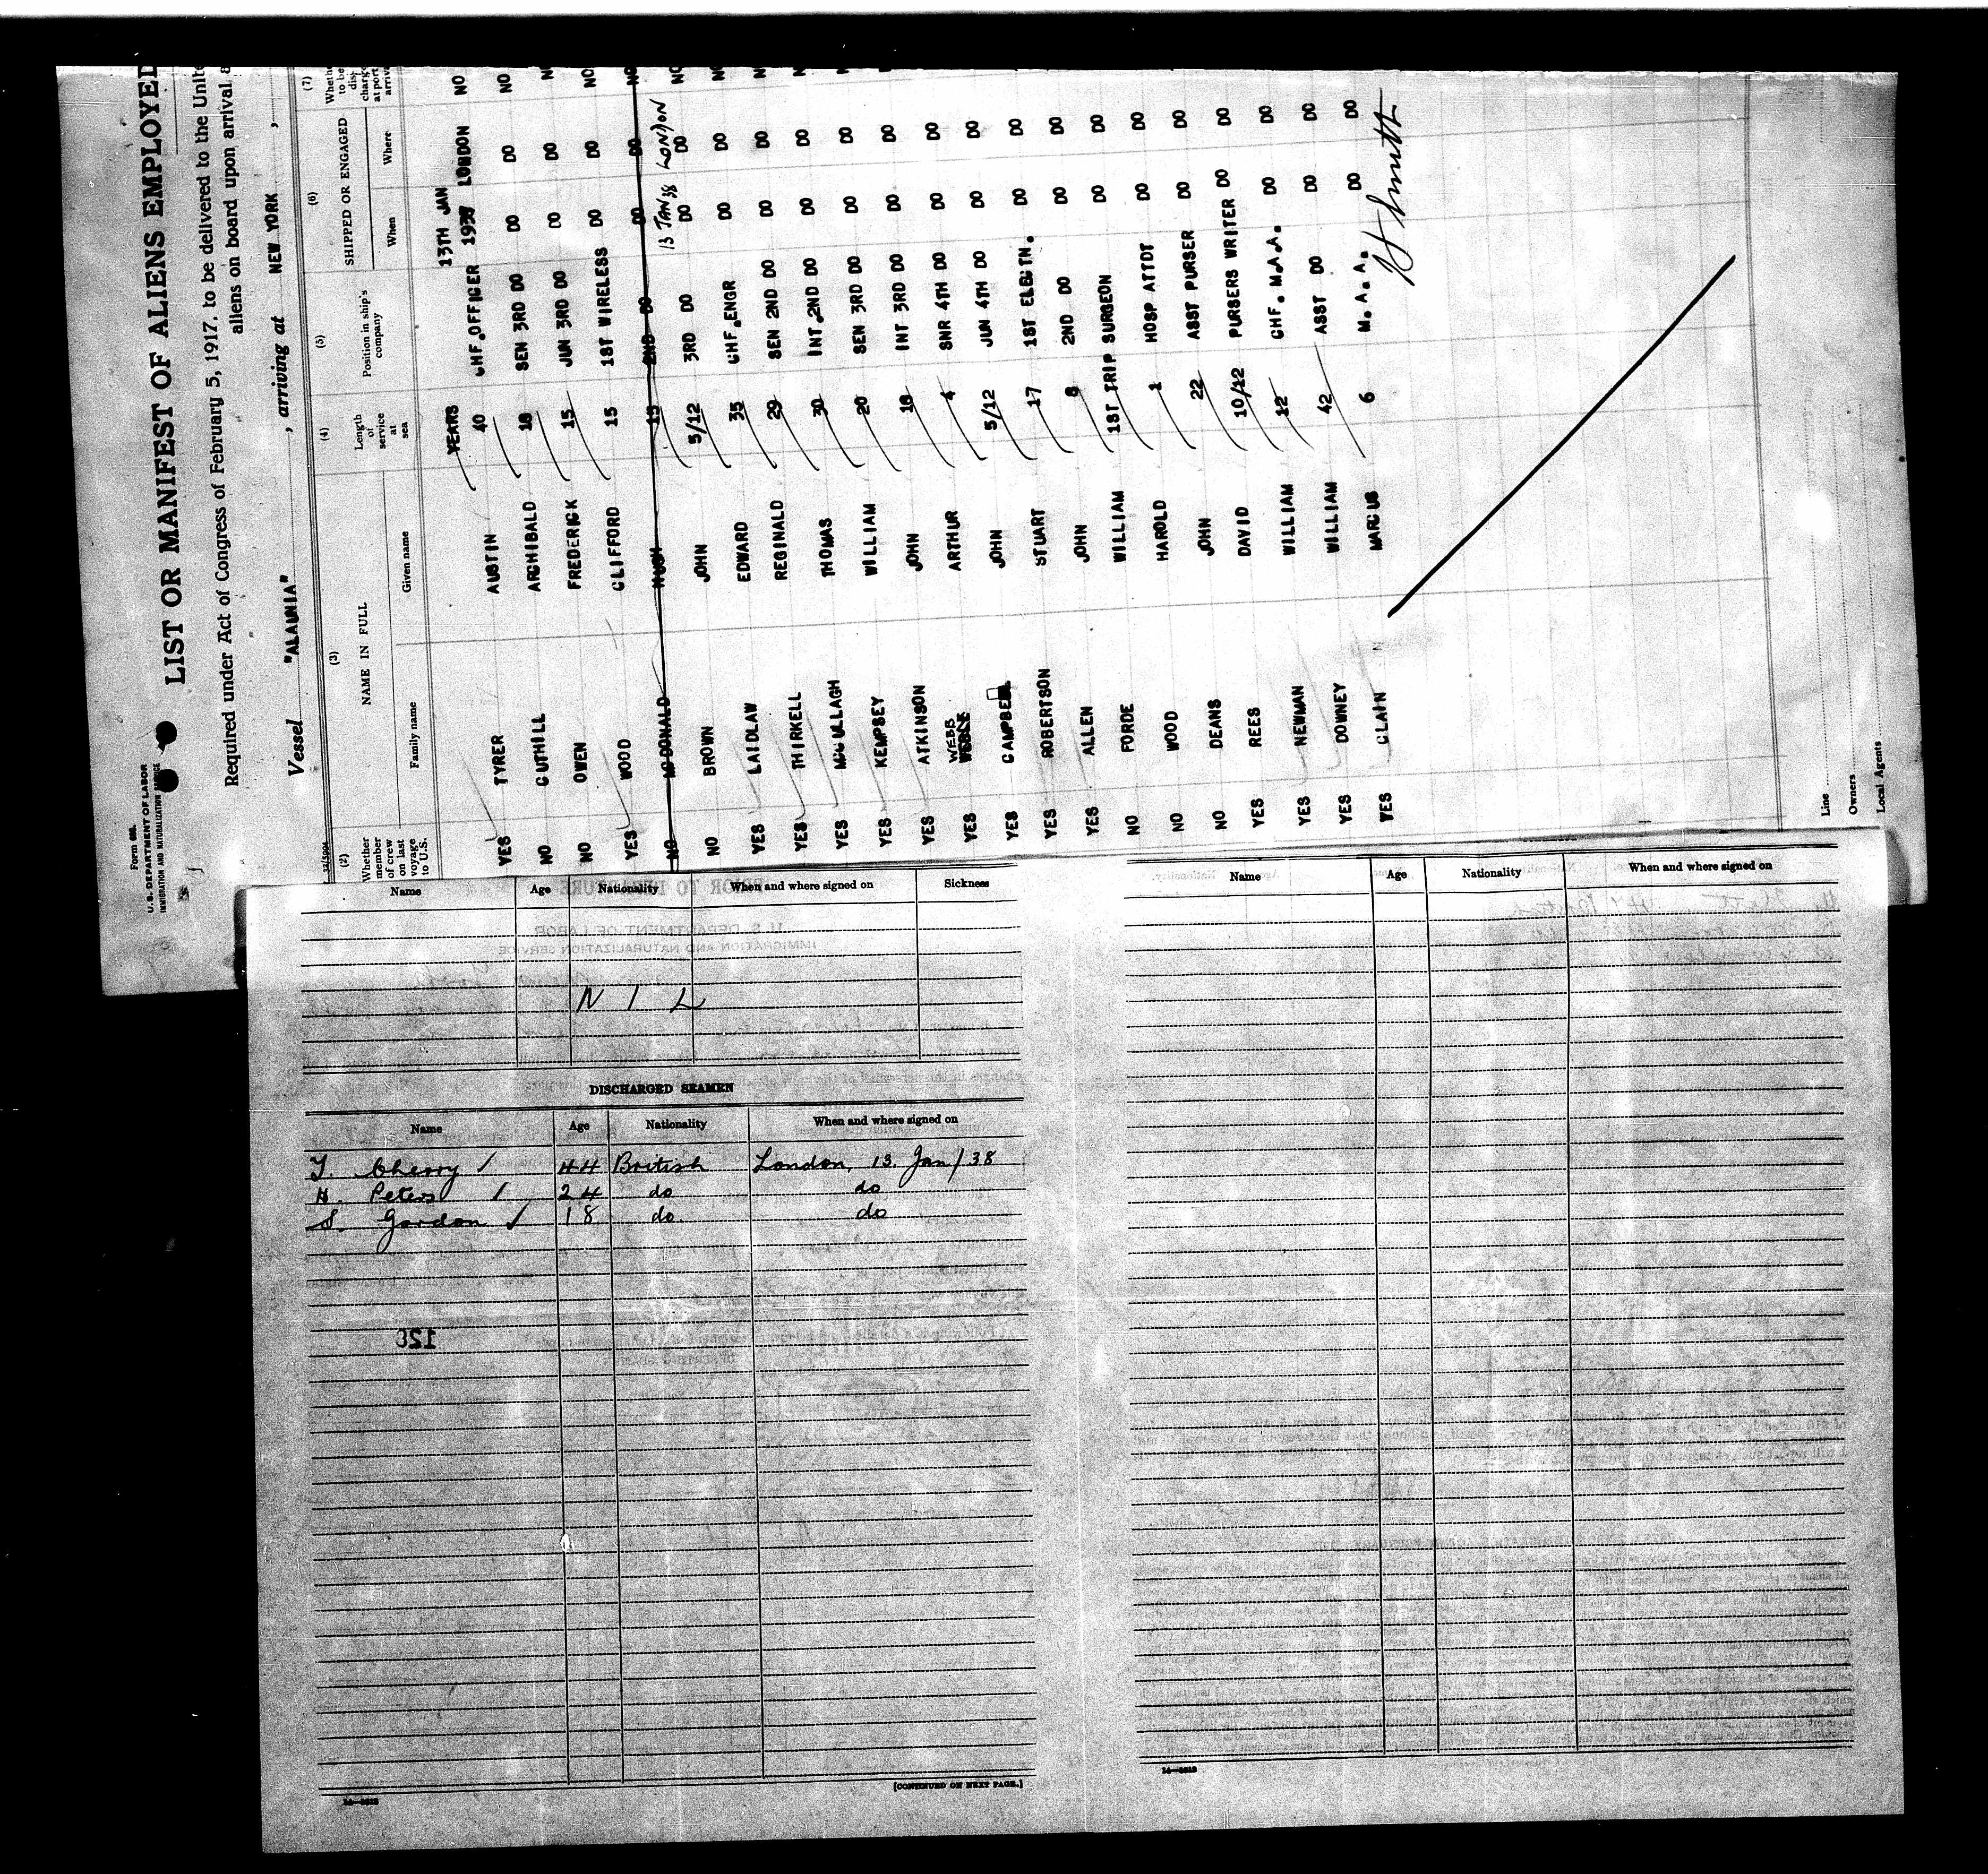 Form 680.
U. S. DEPARTMENT OF LABOR
IMMIGRATION AND NATURALIZATION SERVICE
LIST OR MANIFEST OF ALIENS EMPLOYED
Required under Act of Congress of February 5, 1917, to be delivered to the
aliens on board upon arrival
Vessel "ALAUNIA" , arriving at NEW YORK ,
(2) (3) (4) (5) (6) (7)
Whether member of crew on last voyage to U.S. NAME IN FULL Length of service at sea Position in ship's company SHIPPED OR ENGAGED
Family name Given name When Where
YEARS 13TH JAN
YES TYRER AUSTIN 40 CHF.OFFICER 1938 LONDON NO
NO CUTHILL ARCHIBALD 18 SEN 3RD DO DO DO NO
NO OWEN FREDERICK 15 JUN 3RD DO DO DO NO
YES WOOD CLIFFORD 15 1ST WIRELESS DO DO NO
NO McDONALD HUGH 15 2ND DO DO DO NO
13 JAN 38 LONDON
NO BROWN JOHN 5/12 3RD DO DO DO NO
YES LAIDLAW EDWARD 35 CHF.ENGR DO DO NO
YES THIRKELL REGINALD 29 SEN 2ND DO DO DO
YES McCULLAGH THOMAS 30 INT.2ND DO DO DO
YES KEMPSEY WILLIAM 20 SEN 3RD DO DO DO
YES ATKINSON JOHN 18 INT 3RD DO DO DO
YES WEBB ARTHUR 4 SNR 4TH DO DO DO
YES CAMPBELL JOHN 5/12 JUN 4TH DO DO DO
YES ROBERTSON STUART 17 1ST ELECTN. DO DO
YES ALLEN JOHN 8 2ND DO DO DO
NO FORDE WILLIAM 1ST TRIP SURGEON DO DO
NO WOOD HAROLD 1 HOSP ATTDT DO DO
NO DEANS JOHN 22 ASST PURSER DO DO
YES REES DAVID 10/12 PURSERS WRITER DO DO
YES NEWMAN WILLIAM 12 CHF. M.A.A. DO DO
YES DOWNEY WILLIAM 42 ASST DO DO DO
YES CLAIN MARCUS 6 M.A.A. DO DO
Line
Owners
Local Agents
Name Age Nationality When and where signed on Sickness
N I L
DISCHARGED SEAMEN
Name Age Nationality When and where signed on
T. Cherry 44 British London, 13. Jan/38
H. Peters 24 do do
S. Gordon 18 do. do
[CONTINUED ON NEXT PAGE.]
Name Age Nationality When and where signed on